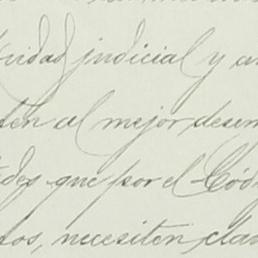 ridad judicial y a
ten al mejor desem
des que por el Códi
sos, necesiten cla